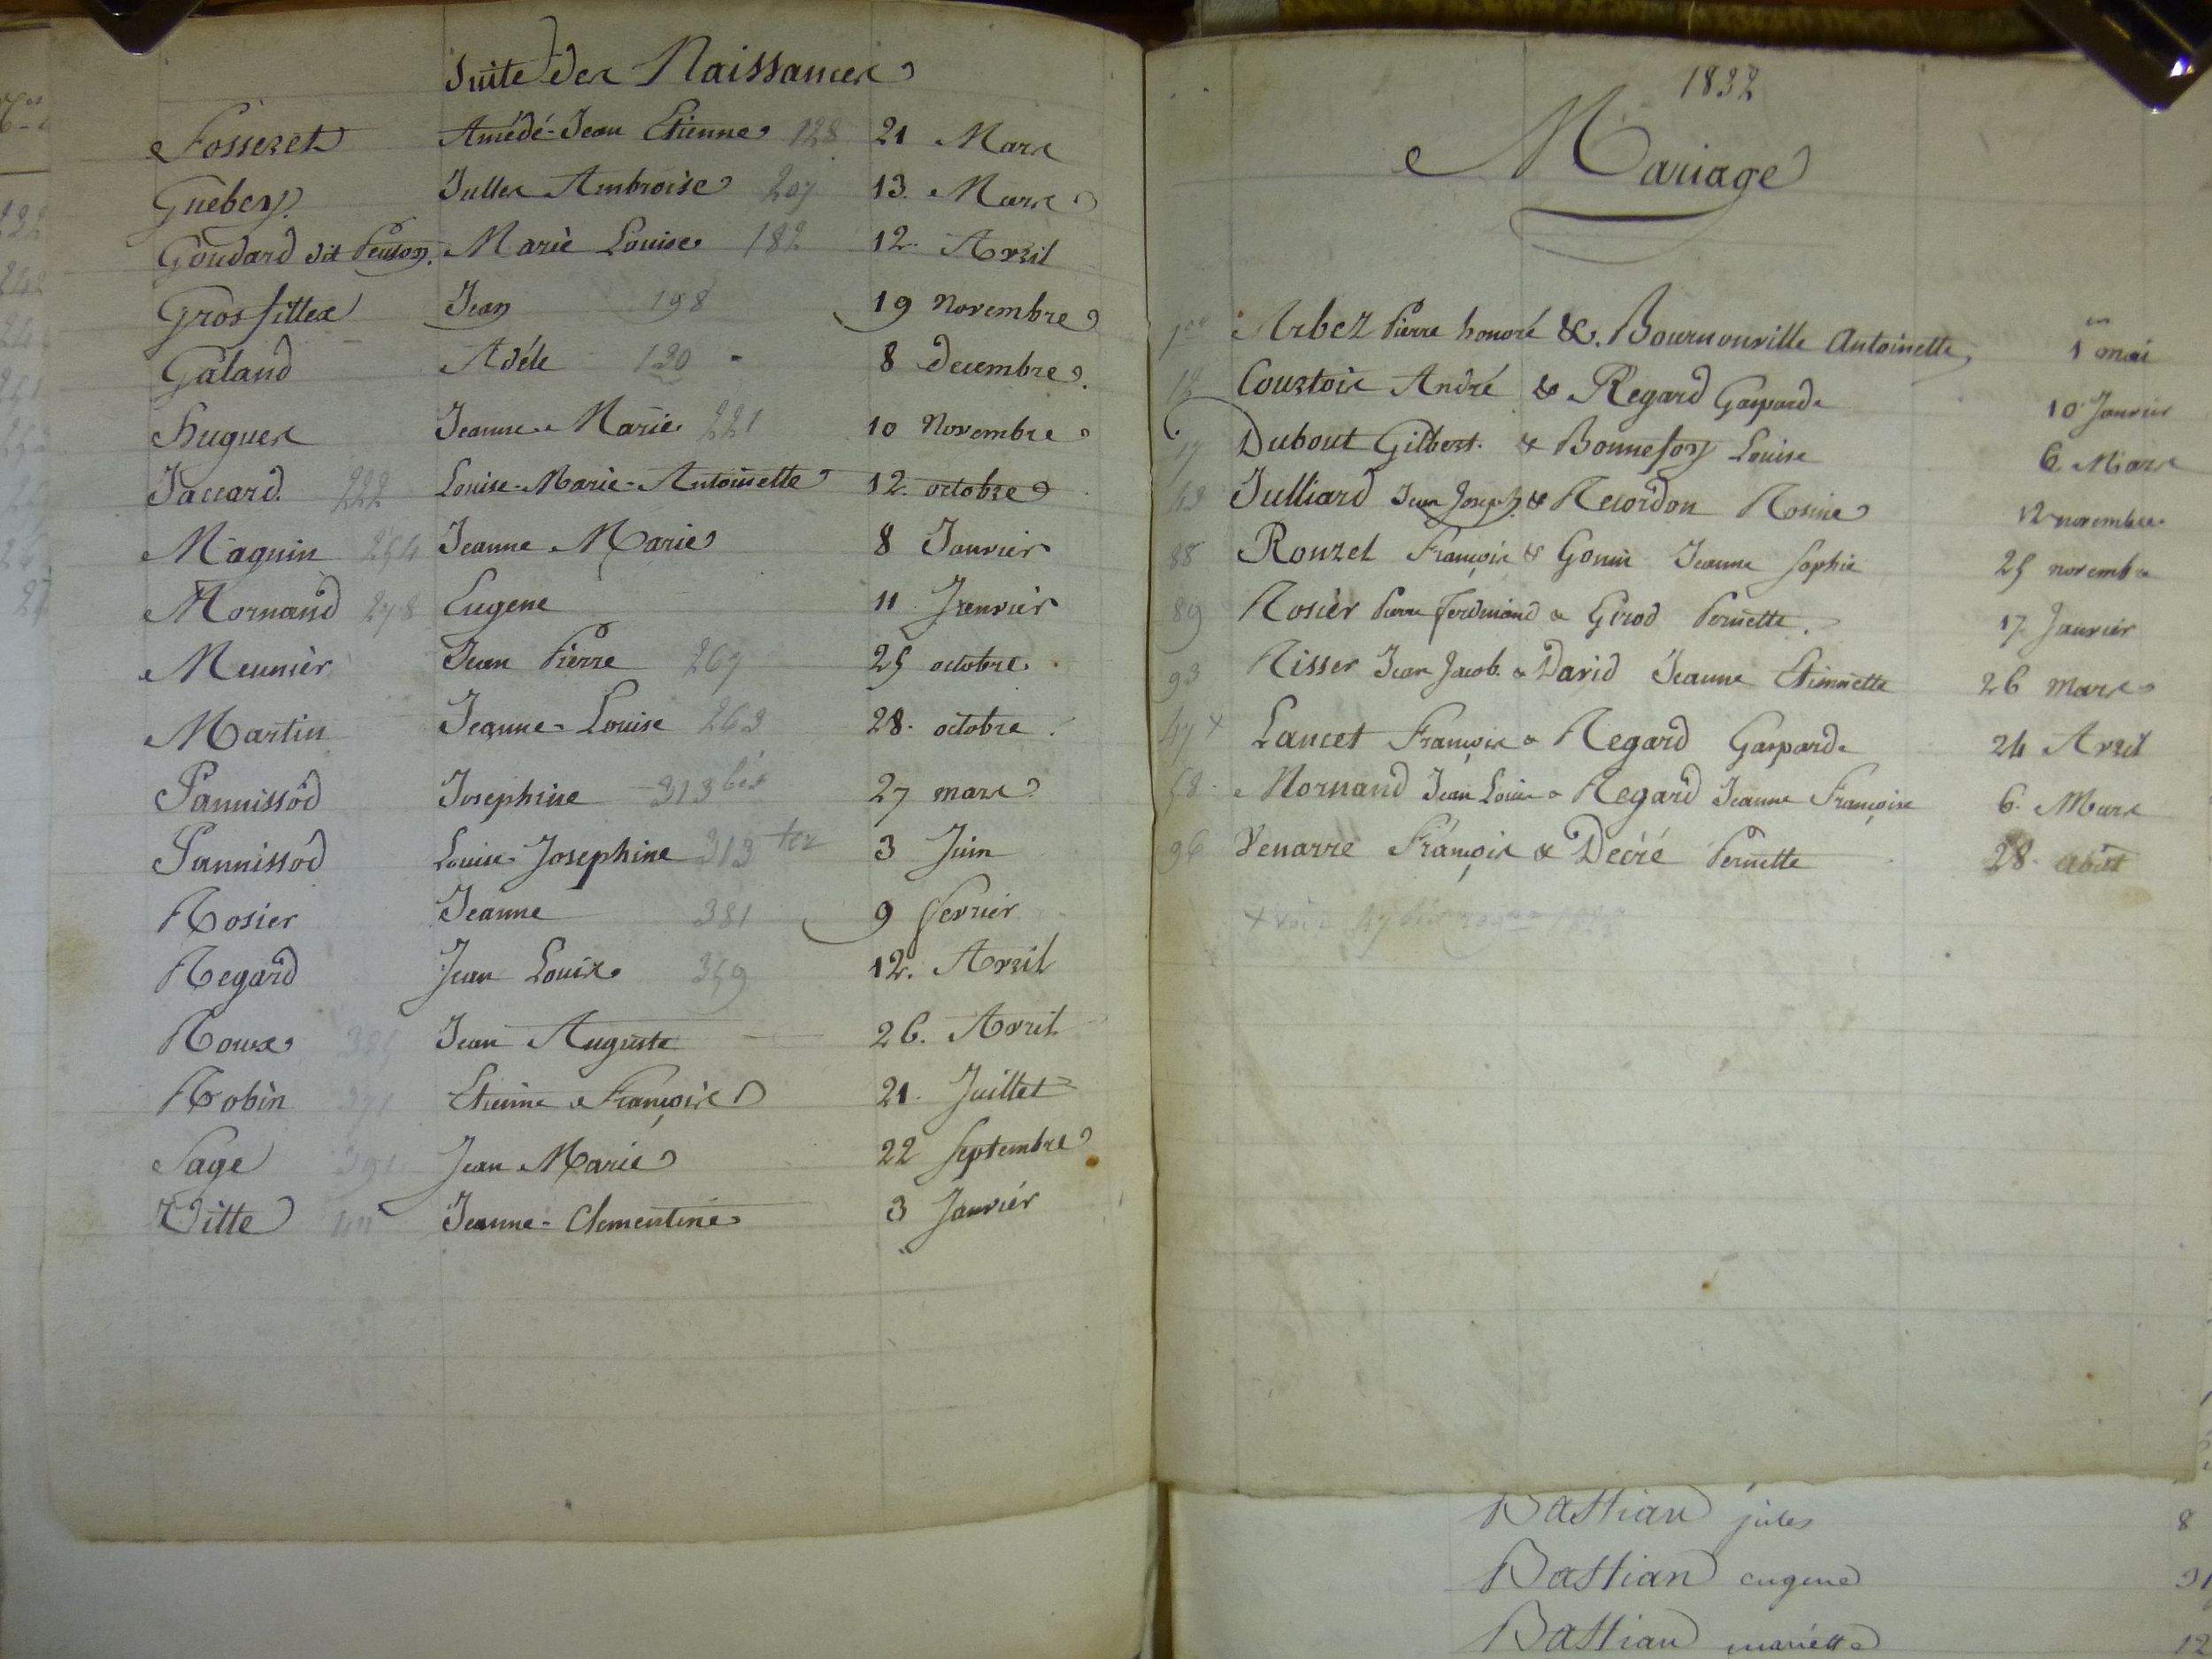 Suite des Naissances
Fosseret Amédé-Jean Etienne 128 21 Mars
Guebey. Julles Ambroise 207 13. Mars
Goudard dit Penson. Marie Louise 182 12. Avril
Grosfillex Jean 198 19 Novembre
Galand Adéle 180 8 Decembre.
Hugues Jeanne Marie 221 10 Novembre
Jaccard. 222 Louise-Marie-Antoinette 12. octobre
Magnin 254 Jeanne Marie 8 Janvier
Mornand 278 Eugene 11 Janvier
Meunier Jean Pierre 267 25 octobre.
Martin Jeanne-Louise 263 28. octobre.
Pannissod Josephine 313 bis 27 mars
Pannissod Louise Josephine 313 ter 3 Juin
Rosier Jeanne 381 9 fevrier
Regard Jean Louis 359 12. Avril
Roux 385 Jean Auguste 26. Avril
Robin 371 Etienne François 21. Juillet
Sage 391 Jean Marie 22 Septembre
Vitte Jeanne-Clementine 3 Janvier
1832
Mariage
Arbez Pierre honoré &. Bournonville Antoinette 1 mai
Courtois André & Regard Gasparde 10 Janvier
17 Dubout Gilbert. & Bonnefoy Louise 6 Mars
43 Julliard Jean Joseph & Recordon Rosine 12 novembre
88 Rouzet François & Gonin Jeanne Sophie 25 novembre
89 Rosier Pierre ferdinand & Girod Pernette. 17. Janvier
93 Risser Jean Jacob. & David Jeanne Etiennette 26 Mars
47 + Lancet François & Regard Gasparde 24 Avril
58. Mornand Jean Louis & Regard Jeanne Françoise 6. Mars
96 Venarre François & Decré Pernette 28. août
+ voir 47 bis
Bastian jules 8
Bastian eugene 31
Bastian mariette 12